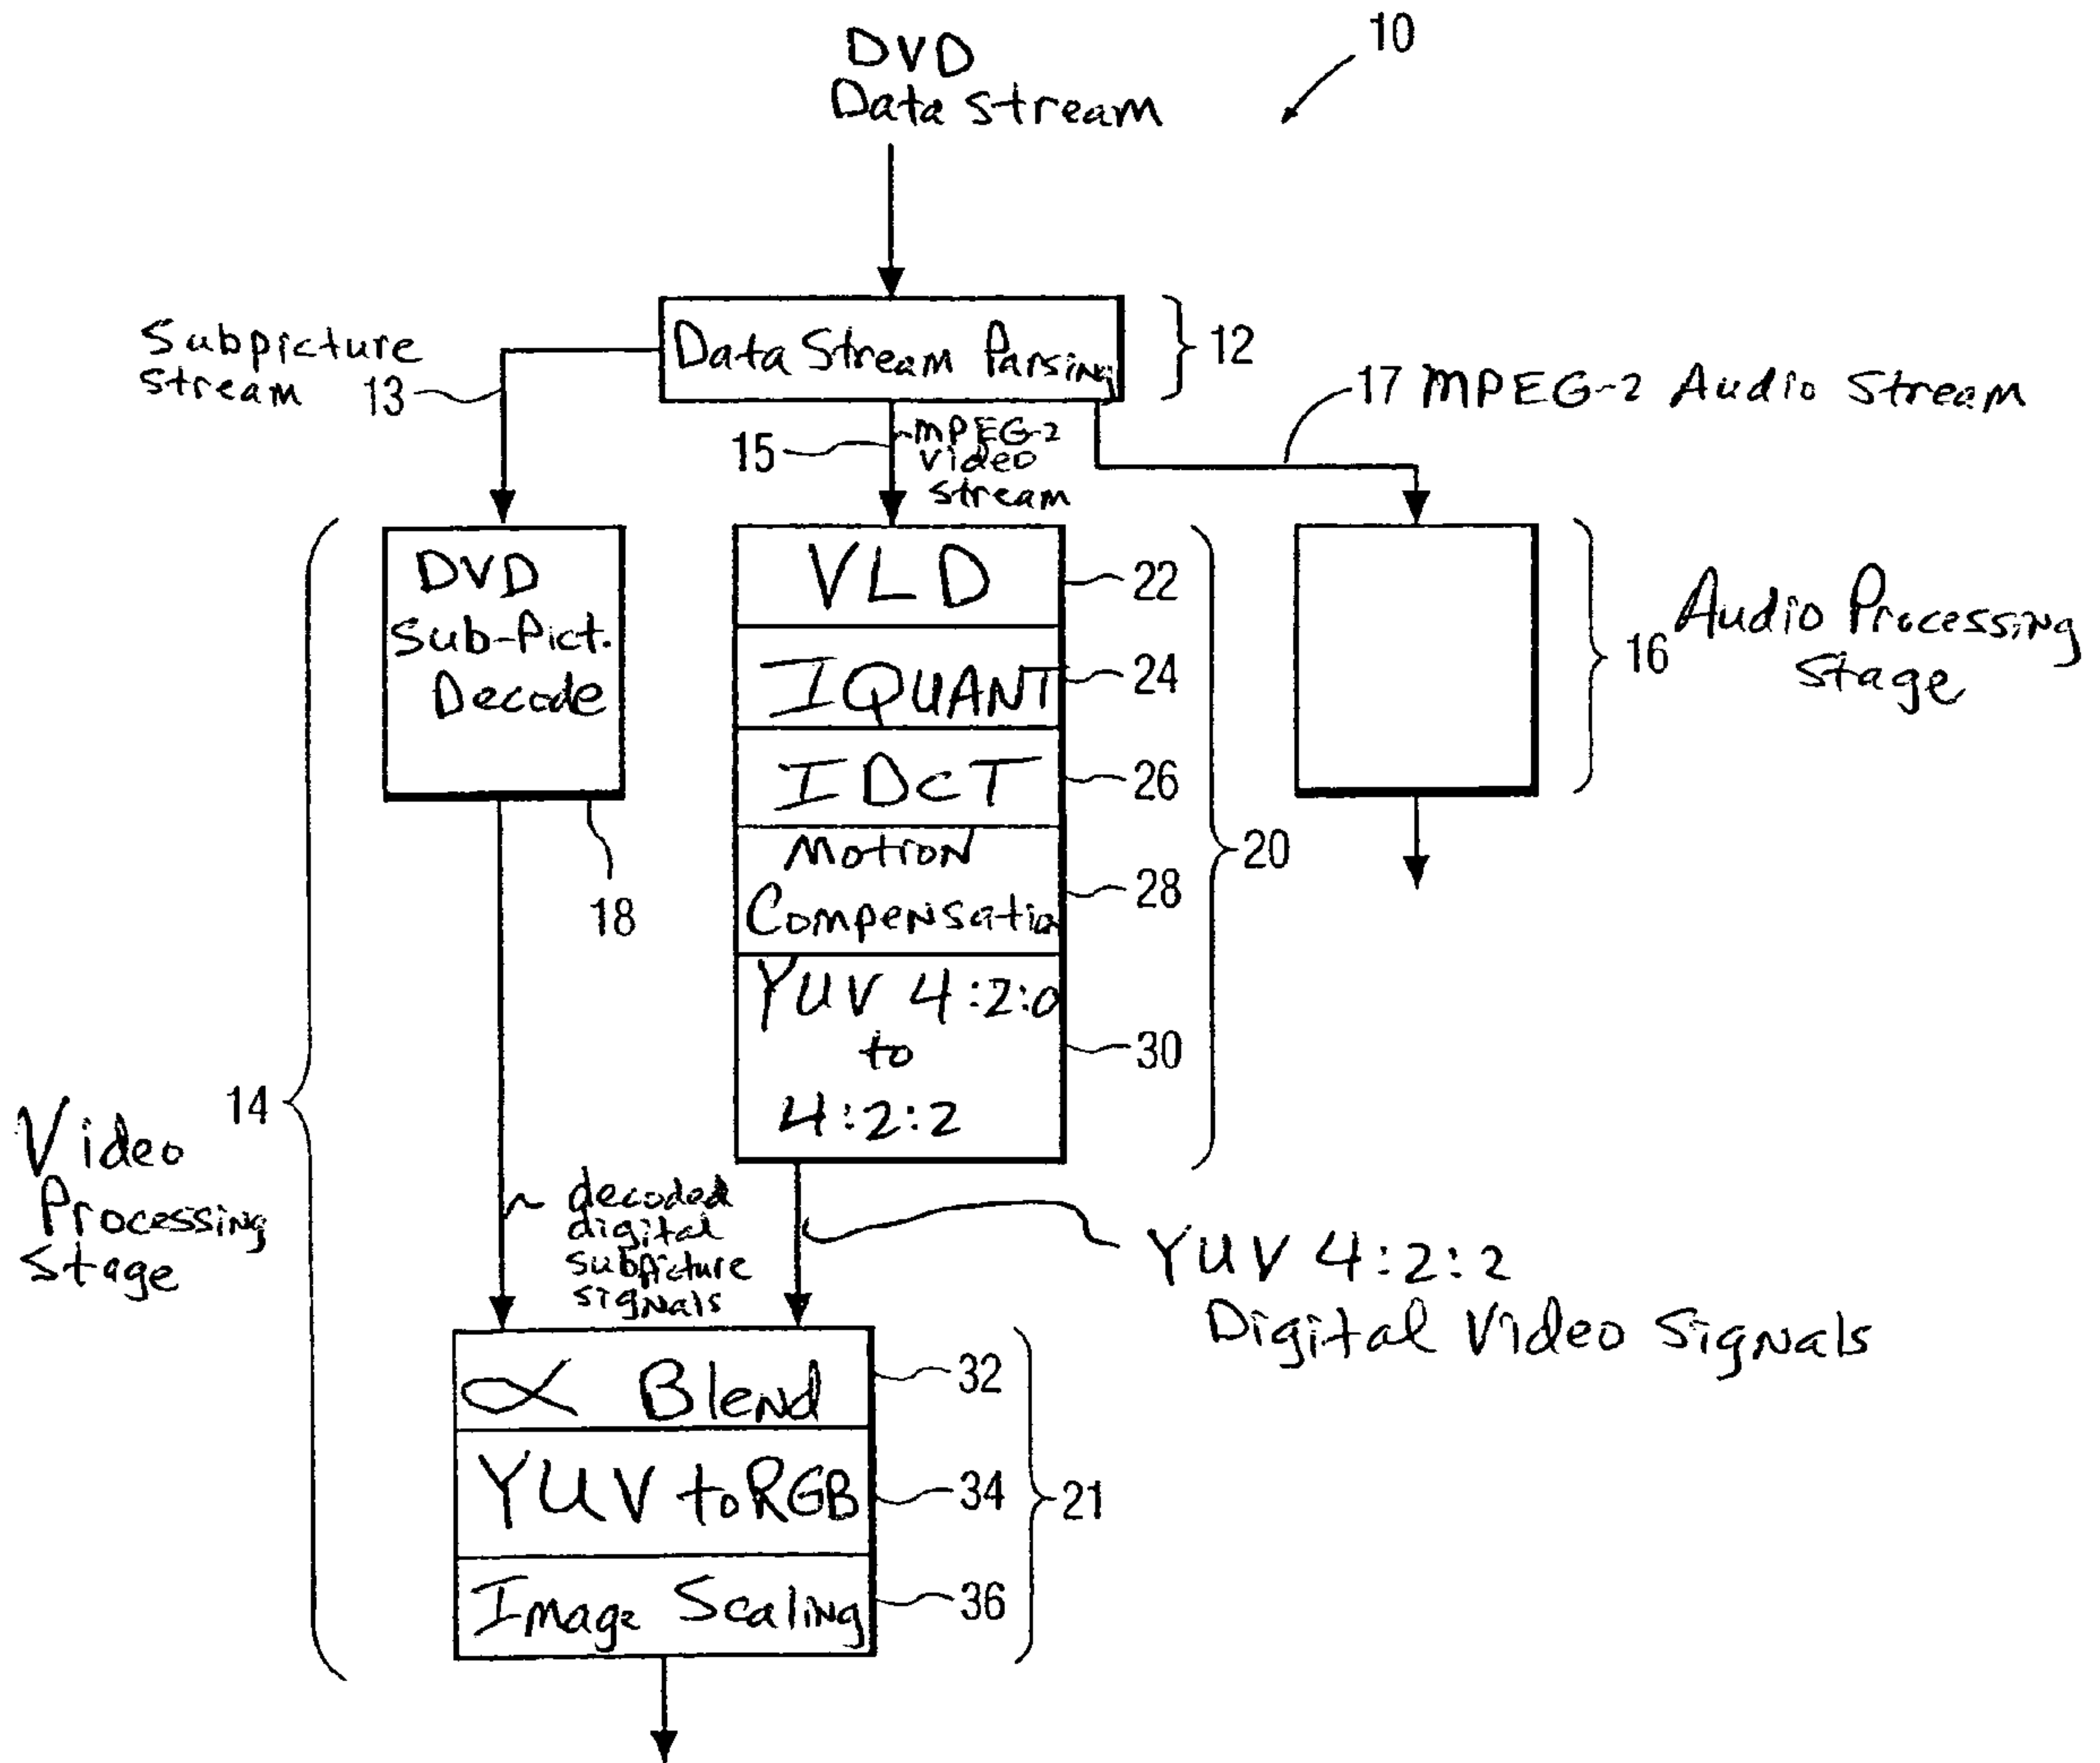 DVD
Data Stream
10
Data Stream Parsing
12
Subpicture
stream 13
17 MPEG-2 Audio Stream
15
MPEG-2
video
stream
DVD
Sub-Pict.
Decode
18
VLD
22
IQUANT
24
IDCT
26
Motion
Compensation
28
YUV 4:2:0
to
4:2:2
30
20
16
Audio Processing
Stage
14
Video
Processing
Stage
decoded
digital
subpicture
signals
YUV 4:2:2
Digital Video Signals
α Blend
32
YUV to RGB
34
Image Scaling
36
21